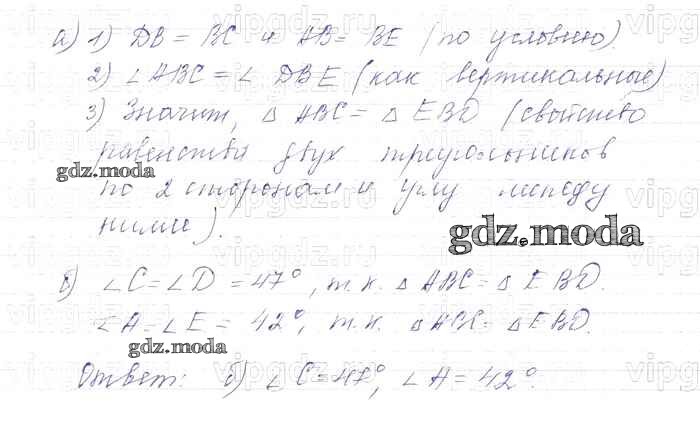 а) 1) DB = BC и AB = BE (по условию).
2) ∠ ABC = ∠ DBE (как вертикальные)
3) Значит, △ ABC = △ EBD (свойство
равенства двух треугольников
gdz.moda
по 2 сторонам и углу между
ними).
gdz.moda
б) ∠C = ∠D = 47°, т.к. △ ABC = △ EBD.
∠A = ∠E = 42°, т.к. △ABC = △EBD.
gdz.moda
Ответ: б) ∠C = 47°, ∠A = 42°.